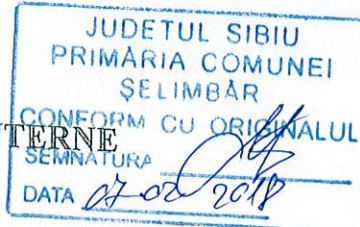 JUDETUL SIBIU
PRIMĂRIA COMUNEI
ŞELIMBĂR
CONFORM CU ORIGINALUL
TERNE
SEMNATURA
DATA 07-02 2018